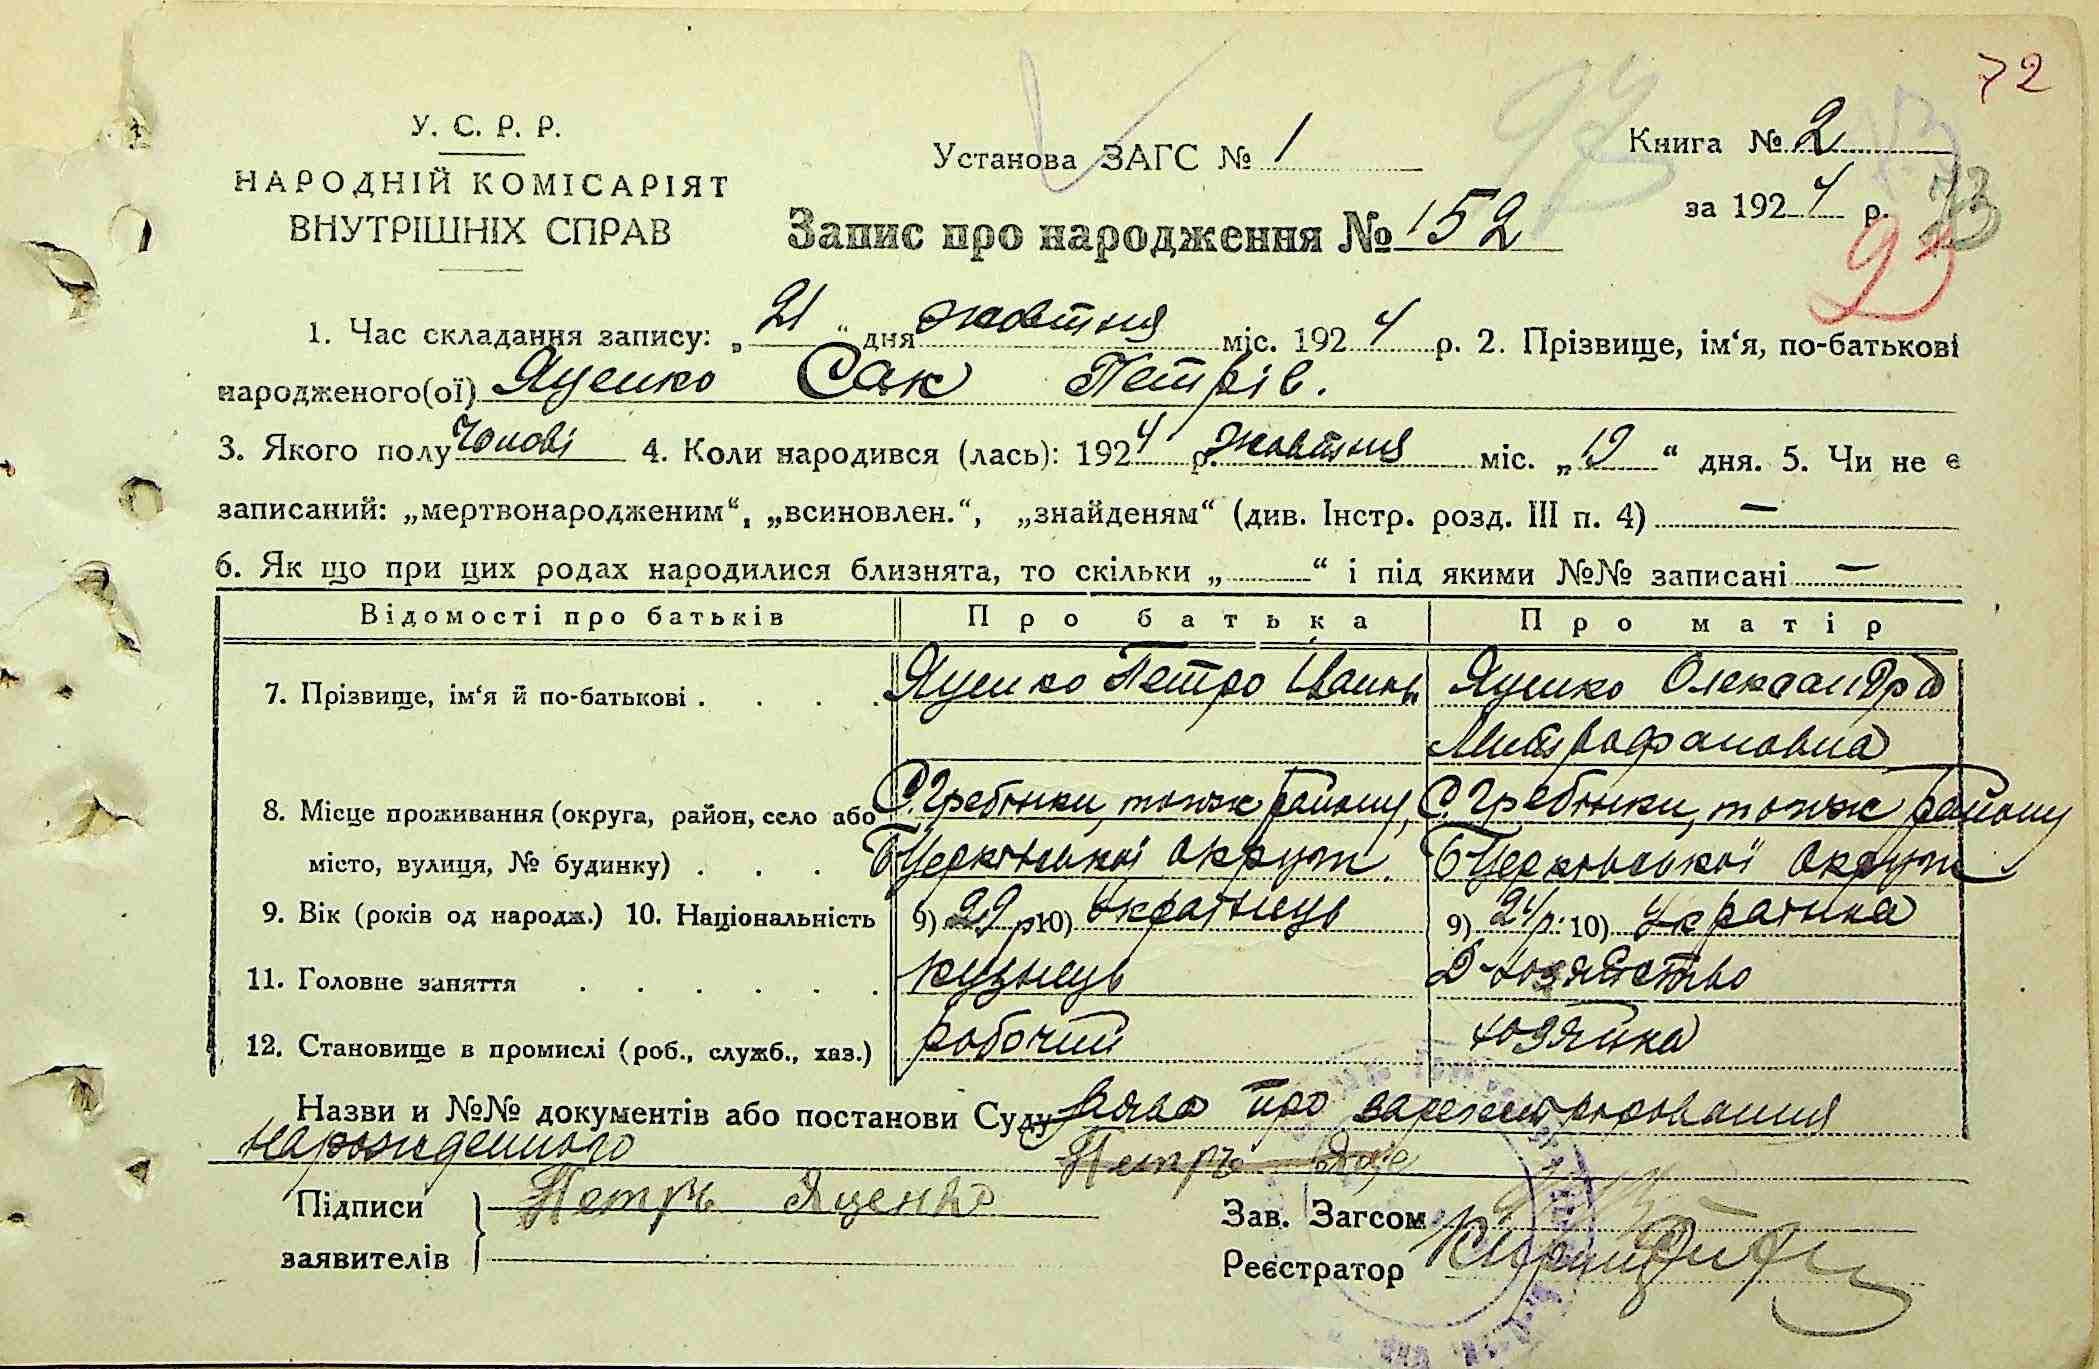 72
У. С. Р. Р.
НАРОДНІЙ КОМІСАРІЯТ
ВНУТРІШНІХ СПРАВ
Установа ЗАГС № 1
97
Книга № 2
за 1924 р.
73
93
Запис про народження № 152
1. Час складання запису: „21“ дня жовтня міс. 1924 р. 2. Прізвище, ім‘я, по-батькові
народженого(ої) Яценко Сак Петрів.
3. Якого полу чолові 4. Коли народився (лась): 1924 р. жовтня міс. „19“ дня. 5. Чи не є
записаний: „мертвонародженим“, „всиновлен.“, „знайденям“ (див. Інстр. розд. III п. 4) —
6. Як що при цих родах народилися близнята, то скільки „ “ і під якими №№ записані —
Відомості про батьків Про батька Про матір
7. Прізвище, ім‘я й по-батькові . . . . Яценко Петро Іванов Яценко Олександра
Митрофановна
8. Місце проживання (округа, район, село або С. Гребінки, тож району, С. Гребінки, тож району
місто, вулиця, № будинку) . . . БЦерківської округи. БЦерківської округи
9. Вік (років од народж.) 10. Національність 9) 29 р 10) Українець 9) 24 р. 10) Українка
11. Головне заняття . . . . . . кузнець Д-хозяйство
12. Становище в промислі (роб., служб., хаз.) робочий хозяйка
Назви и №№ документів або постанови Суду Заява про зарегистрировання
нарожденного Петръ Яце
Підписи Петръ Яценко Зав. Загсом
заявителів Реєстратор